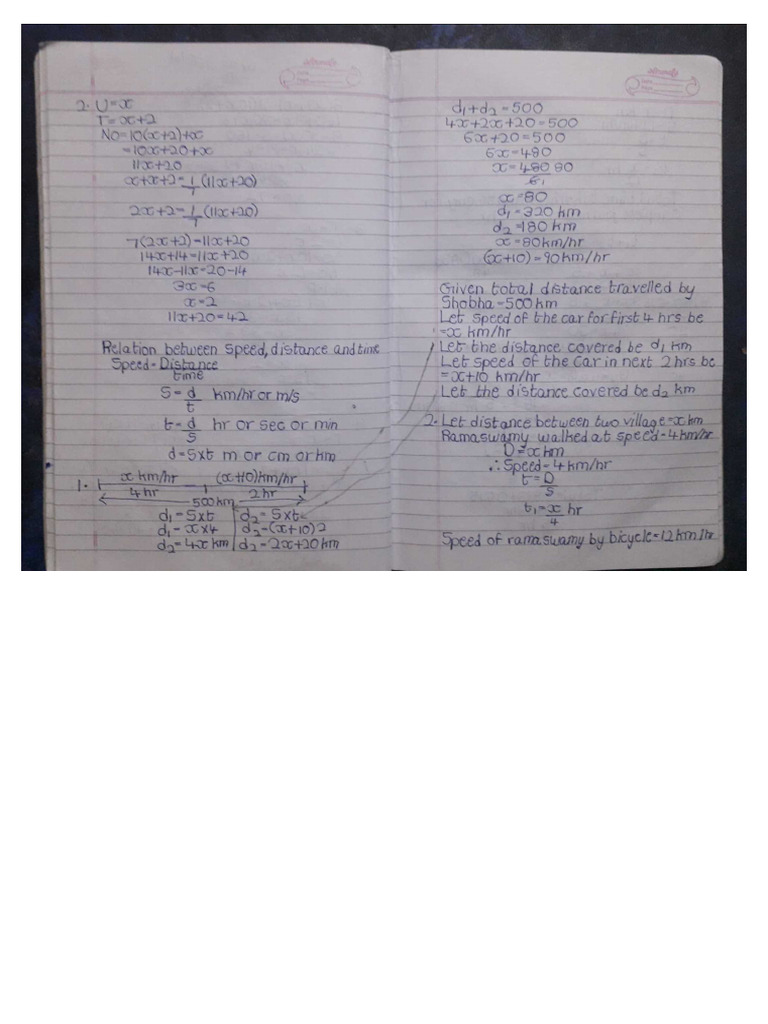 2. U=x
T=x+2
No=10(x+2)+x
=10x+20+x
11x+20
x+x+2=1/7(11x+20)
2x+2=1/7(11x+20)
7(2x+2)=11x+20
14x+14=11x+20
14x-11x=20-14
3x=6
x=2
11x+20=42
Relation between speed, distance and time
Speed=Distance/time
S=d/t km/hr or m/s
t=d/s hr or sec or min
d=sxt m or cm or km
1. x km/hr (x+10)km/hr
4 hr 2 hr
500km
d₁=sxt d₂=sxt
d₁=x×4 d₂=(x+10)2
d₂=4x km d₂=2x+20km
d₁+d₂=500
4x+2x+20=500
6x+20=500
6x=480
x=480 80/6 1
x=80
d₁=320 km
d₂=180 km
x=80km/hr
(x+10)=90km/hr
Given total distance travelled by
Shobha=500km
Let speed of the car for first 4 hrs be
=x km/hr
Let the distance covered be d₁ km
Let speed of the car in next 2 hrs be
=x+10 km/hr
Let the distance covered be d₂ km
2. Let distance between two village=x km
Ramaswamy walked at speed=4km/hr
D=x km
∴Speed=4 km/hr
t=D/S
t₁=x/4 hr
Speed of ramaswamy by bicycle=12km/hr